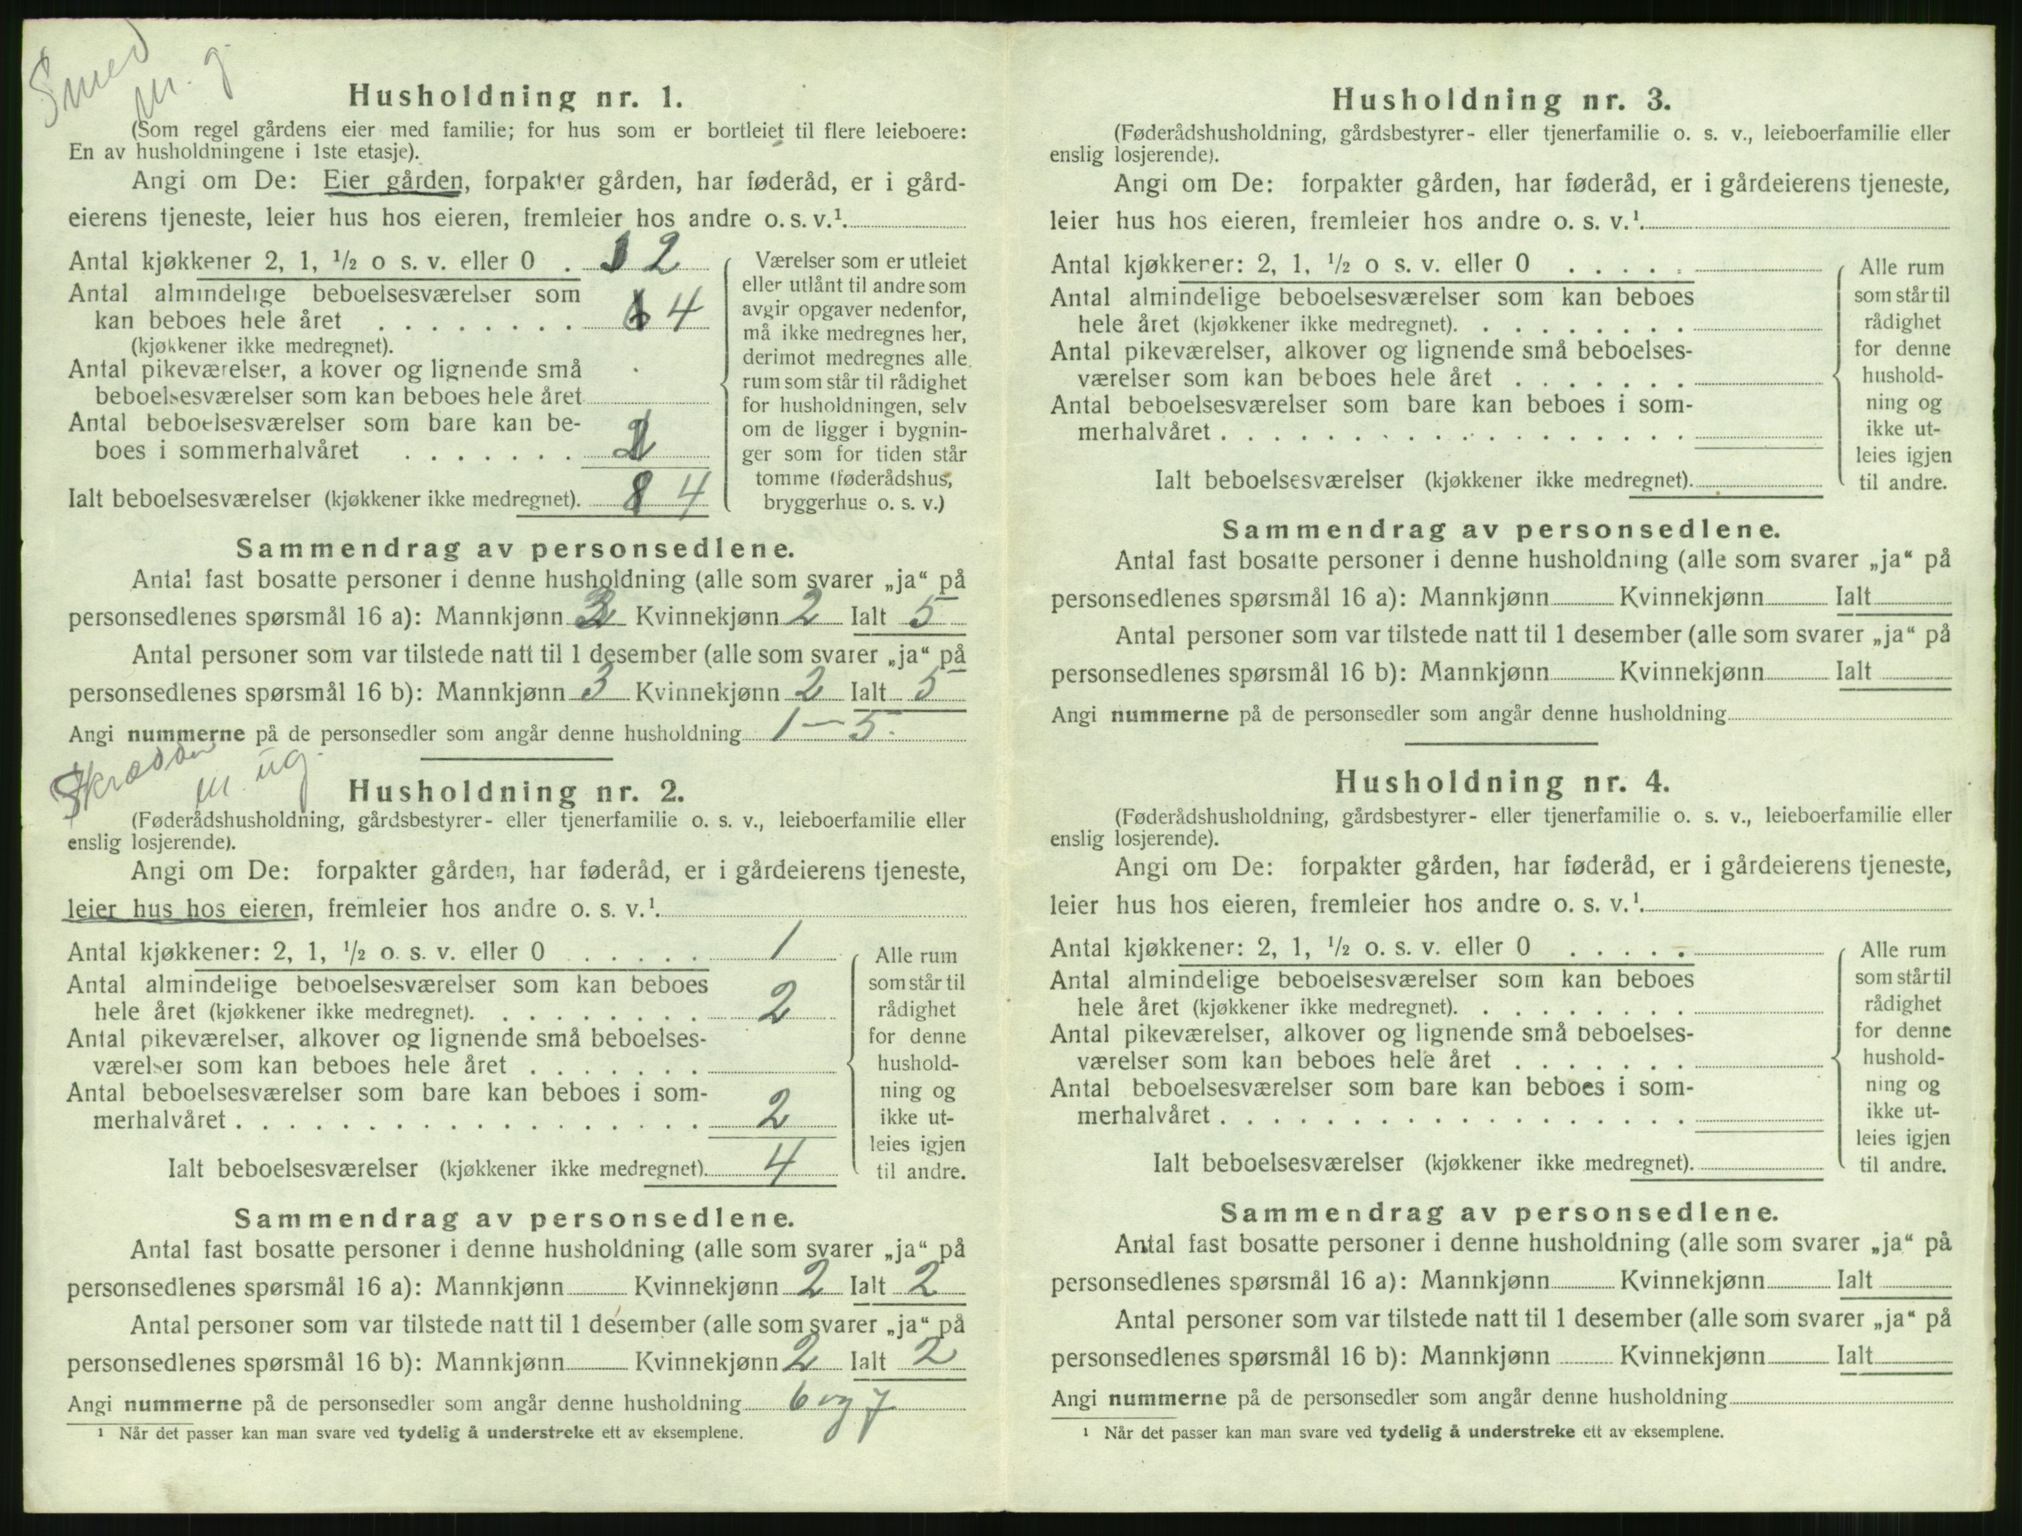 Smed
m. g.
Husholdning nr. 1.
(Som regel gårdens eier med familie; for hus som er bortleiet til flere leieboere:
En av husholdningene i 1ste etasje).
Angi om De: Eier gården, forpakter gården, har føderåd, er i gård-
eierens tjeneste, leier hus hos eieren, fremleier hos andre o. s. v.¹
Antal kjøkkener 2, 1, ½ o s. v. eller 0 . 2
Antal almindelige beboelsesværelser som
kan beboes hele året . . . . . . . . 4
(kjøkkener ikke medregnet).
Antal pikeværelser, a kover og lignende små
beboelsesværelser som kan beboes hele året
Antal beboelsesværelser som bare kan be-
boes i sommerhalvåret . . . . . . .
Ialt beboelsesværelser (kjøkkener ikke medregnet). 4
Værelser som er utleiet
eller utlånt til andre som
avgir opgaver nedenfor,
må ikke medregnes her,
derimot medregnes alle
rum som står til rådighet
for husholdningen, selv
om de ligger i bygnin-
ger som for tiden står
tomme (føderådshus,
bryggerhus o. s. v.)
Sammendrag av personsedlene.
Antal fast bosatte personer i denne husholdning (alle som svarer „ja“ på
personsedlenes spørsmål 16 a): Mannkjønn 3 Kvinnekjønn 2 Ialt 5
Antal personer som var tilstede natt til 1 desember (alle som svarer „ja“ på
personsedlenes spørsmål 16 b): Mannkjønn 3 Kvinnekjønn 2 Ialt 5
Angi nummerne på de personsedler som angår denne husholdning 1 — 5.
Skrædder
m. ug.
Husholdning nr. 2.
(Føderådshusholdning, gårdsbestyrer- eller tjenerfamilie o. s. v., leieboerfamilie eller
enslig losjerende).
Angi om De: forpakter gården, har føderåd, er i gårdeierens tjeneste,
leier hus hos eieren, fremleier hos andre o. s. v.¹
Antal kjøkkener: 2, 1, ½ o. s. v. eller 0 . . . . . 1
Antal almindelige beboelsesværelser som kan beboes
hele året (kjøkkener ikke medregnet). . . . . . . . . 2
Antal pikeværelser, alkover og lignende små beboelses-
værelser som kan beboes hele året . . . . . . .
Antal beboelsesværelser som bare kan beboes i som-
merhalvåret . . . . . . . . . . . . . . . . . . 2
Ialt beboelsesværelser (kjøkkener ikke medregnet). 4
Alle rum
som står til
rådighet
for denne
hushold-
ning og
ikke ut-
leies igjen
til andre.
Sammendrag av personsedlene.
Antal fast bosatte personer i denne husholdning (alle som svarer „ja“ på
personsedlenes spørsmål 16 a): Mannkjønn Kvinnekjønn 2 Ialt 2
Antal personer som var tilstede natt til 1 desember (alle som svarer „ja“ på
personsedlenes spørsmål 16 b): Mannkjønn Kvinnekjønn 2 Ialt 2
Angi nummerne på de personsedler som angår denne husholdning 6 og 7
¹ Når det passer kan man svare ved tydelig å understreke ett av eksemplene.
Husholdning nr. 3.
(Føderådshusholdning, gårdsbestyrer- eller tjenerfamilie o. s. v., leieboerfamilie eller
enslig losjerende).
Angi om De: forpakter gården, har føderåd, er i gårdeierens tjeneste,
leier hus hos eieren, fremleier hos andre o. s. v.¹
Antal kjøkkener: 2, 1, ½ o s. v. eller 0 . . . . .
Antal almindelige beboelsesværelser som kan beboes
hele året (kjøkkener ikke medregnet). . . . . . . . .
Antal pikeværelser, alkover og lignende små beboelses-
værelser som kan beboes hele året . . . . . . .
Antal beboelsesværelser som bare kan beboes i som-
merhalvåret . . . . . . . . . . . . . . . . . .
Ialt beboelsesværelser (kjøkkener ikke medregnet).
Alle rum
som står til
rådighet
for denne
hushold-
ning og
ikke ut-
leies igjen
til andre.
Sammendrag av personsedlene.
Antal fast bosatte personer i denne husholdning (alle som svarer „ja“ på
personsedlenes spørsmål 16 a): Mannkjønn Kvinnekjønn Ialt
Antal personer som var tilstede natt til 1 desember (alle som svarer „ja“ på
personsedlenes spørsmål 16 b): Mannkjønn Kvinnekjønn Ialt
Angi nummerne på de personsedler som angår denne husholdning
Husholdning nr. 4.
(Føderådshusholdning, gårdsbestyrer- eller tjenerfamilie o. s. v., leieboerfamilie eller
enslig losjerende).
Angi om De: forpakter gården, har føderåd, er i gårdeierens tjeneste,
leier hus hos eieren, fremleier hos andre o. s. v.¹
Antal kjøkkener: 2, 1, ½ o. s. v. eller 0 . . . . .
Antal almindelige beboelsesværelser som kan beboes
hele året (kjøkkener ikke medregnet). . . . . . . . .
Antal pikeværelser, alkover og lignende små beboelses-
værelser som kan beboes hele året . . . . . . .
Antal beboelsesværelser som bare kan beboes i som-
merhalvåret . . . . . . . . . . . . . . . . . .
Ialt beboelsesværelser (kjøkkener ikke medregnet).
Alle rum
som står til
rådighet
for denne
hushold-
ning og
ikke ut-
leies igjen
til andre.
Sammendrag av personsedlene.
Antal fast bosatte personer i denne husholdning (alle som svarer „ja“ på
personsedlenes spørsmål 16 a): Mannkjønn Kvinnekjønn Ialt
Antal personer som var tilstede natt til 1 desember (alle som svarer „ja“ på
personsedlenes spørsmål 16 b): Mannkjønn Kvinnekjønn Ialt
Angi nummerne på de personsedler som angår denne husholdning
¹ Når det passer kan man svare ved tydelig å understreke ett av eksemplene.